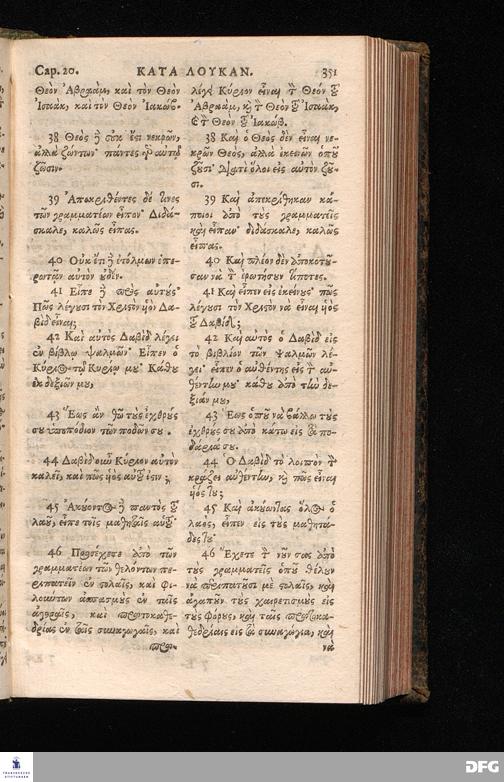 Cap. 20. ΚΑΤΑ ΛΟΥΚΑΝ. 351
Θεὸν Ἀβραὰμ, καὶ τὸν Θεὸν
Ἰσαὰκ, καὶ τὸν Θεὸν Ἰακώβ.
38 Θεὸς δὲ οὐκ ἔστι νεκρῶν,
ἀλλὰ ζώντων· πάντες γὰρ αὐτῷ
ζῶσιν.
39 Ἀποκριθέντες δέ τινες
τῶν γραμματέων εἶπον· Διδά-
σκαλε, καλῶς εἶπας.
40 Οὐκ ἔτι δὲ ἐτόλμων ἐπε-
ρωτᾷν αὐτὸν οὐδέν.
41 Εἶπε δὲ πρὸς αὐτούς·
Πῶς λέγουσι τὸν Χριστὸν ὑὸν Δα-
βὶδ εἶναι;
42 Καὶ αὐτὸς Δαβὶδ λέγει
ἐν βίβλῳ ψαλμῶν· Εἶπεν ὁ
Κύριος τῷ Κυρίῳ μου· Κάθου
ἐκ δεξιῶν μου,
43 Ἕως ἂν θῶ τοὺς ἐχθρούς
σου ὑποπόδιον τῶν ποδῶν σου.
44 Δαβὶδ οὖν Κύριον αὐτὸν
καλεῖ, καὶ πῶς ὑὸς αὐτοῦ ἐστιν;
45 Ἀκούοντος δὲ παντὸς τοῦ
λαοῦ, εἶπε τοῖς μαθηταῖς αὐτοῦ·
46 Προσέχετε ἀπὸ τῶν
γραμματέων τῶν θελόντων πε-
ριπατεῖν ἐν στολαῖς, καὶ φι-
λούντων ἀσπασμοὺς ἐν ταῖς
ἀγοραῖς, καὶ πρωτοκαθε-
δρίας ἐν ταῖς συναγωγαῖς, καὶ
πρω-
λέγει Κύριον εἶναι τὸν Θεὸν τοῦ
Ἀβραὰμ, καὶ τὸν Θεὸν τοῦ Ἰσαὰκ,
καὶ τὸν Θεὸν τοῦ Ἰακώβ.
38 Καὶ ὁ Θεὸς δὲν εἶναι νε-
κρῶν Θεὸς, ἀλλὰ ἐκεινῶν ὁποῦ
ζοῦσι· διατὶ ὅλοι εἰς αὐτὸν ζοῦ-
σι.
39 Καὶ ἀπεκρίθηκαν κά-
ποιοι ἀπὸ τοὺς γραμματεῖς
καὶ εἶπαν· διδάσκαλε, καλῶς
εἶπας.
40 Καὶ πλέον δὲν ἀποκοτοῦ-
σαν νὰ τὸν ἐρωτήσουν τίποτες.
41 Καὶ εἶπεν εἰς ἐκείνους· πῶς
λέγουσι τὸν Χριστὸν νὰ εἶναι ὑὸς
τοῦ Δαβίδ;
42 Καὶ αὐτὸς ὁ Δαβὶδ εἰς
τὸ βιβλίον τῶν Ψαλμῶν λέ-
γει· εἶπεν ὁ αὐθέντης εἰς τὸν αὐ-
θέντην μου· κάθου ἀπὸ τὴν δε-
ξιάν μου,
43 Ἕως ὁποῦ νὰ βάλλω τοὺς
ἐχθρούς σου ἀπὸ κάτω εἰς τὰ πο-
δάριά σου.
44 Ὁ Δαβὶδ τὸ λοιπὸν τὸν
κράζει αὐθέντην, καὶ πῶς εἶναι
ὑός του;
45 Καὶ ἀκούωντας ὅλος ὁ
λαὸς, εἶπεν εἰς τοὺς μαθητά-
δες του·
46 Ἔχετε τὸν νοῦν σας ἀπὸ
τοὺς γραμματεῖς ὁποῦ θέλουν
νὰ περιπατοῦσι μὲ στολαῖς, καὶ
ἀγαποῦν τοὺς χαιρετισμοὺς εἰς
τοὺς φόρους, καὶ ταῖς πρωτοκα-
θεδρίαις εἰς τὰ συναγώγια, καὶ
νὰ
FRANCKESCHE STIFTUNGEN
DFG